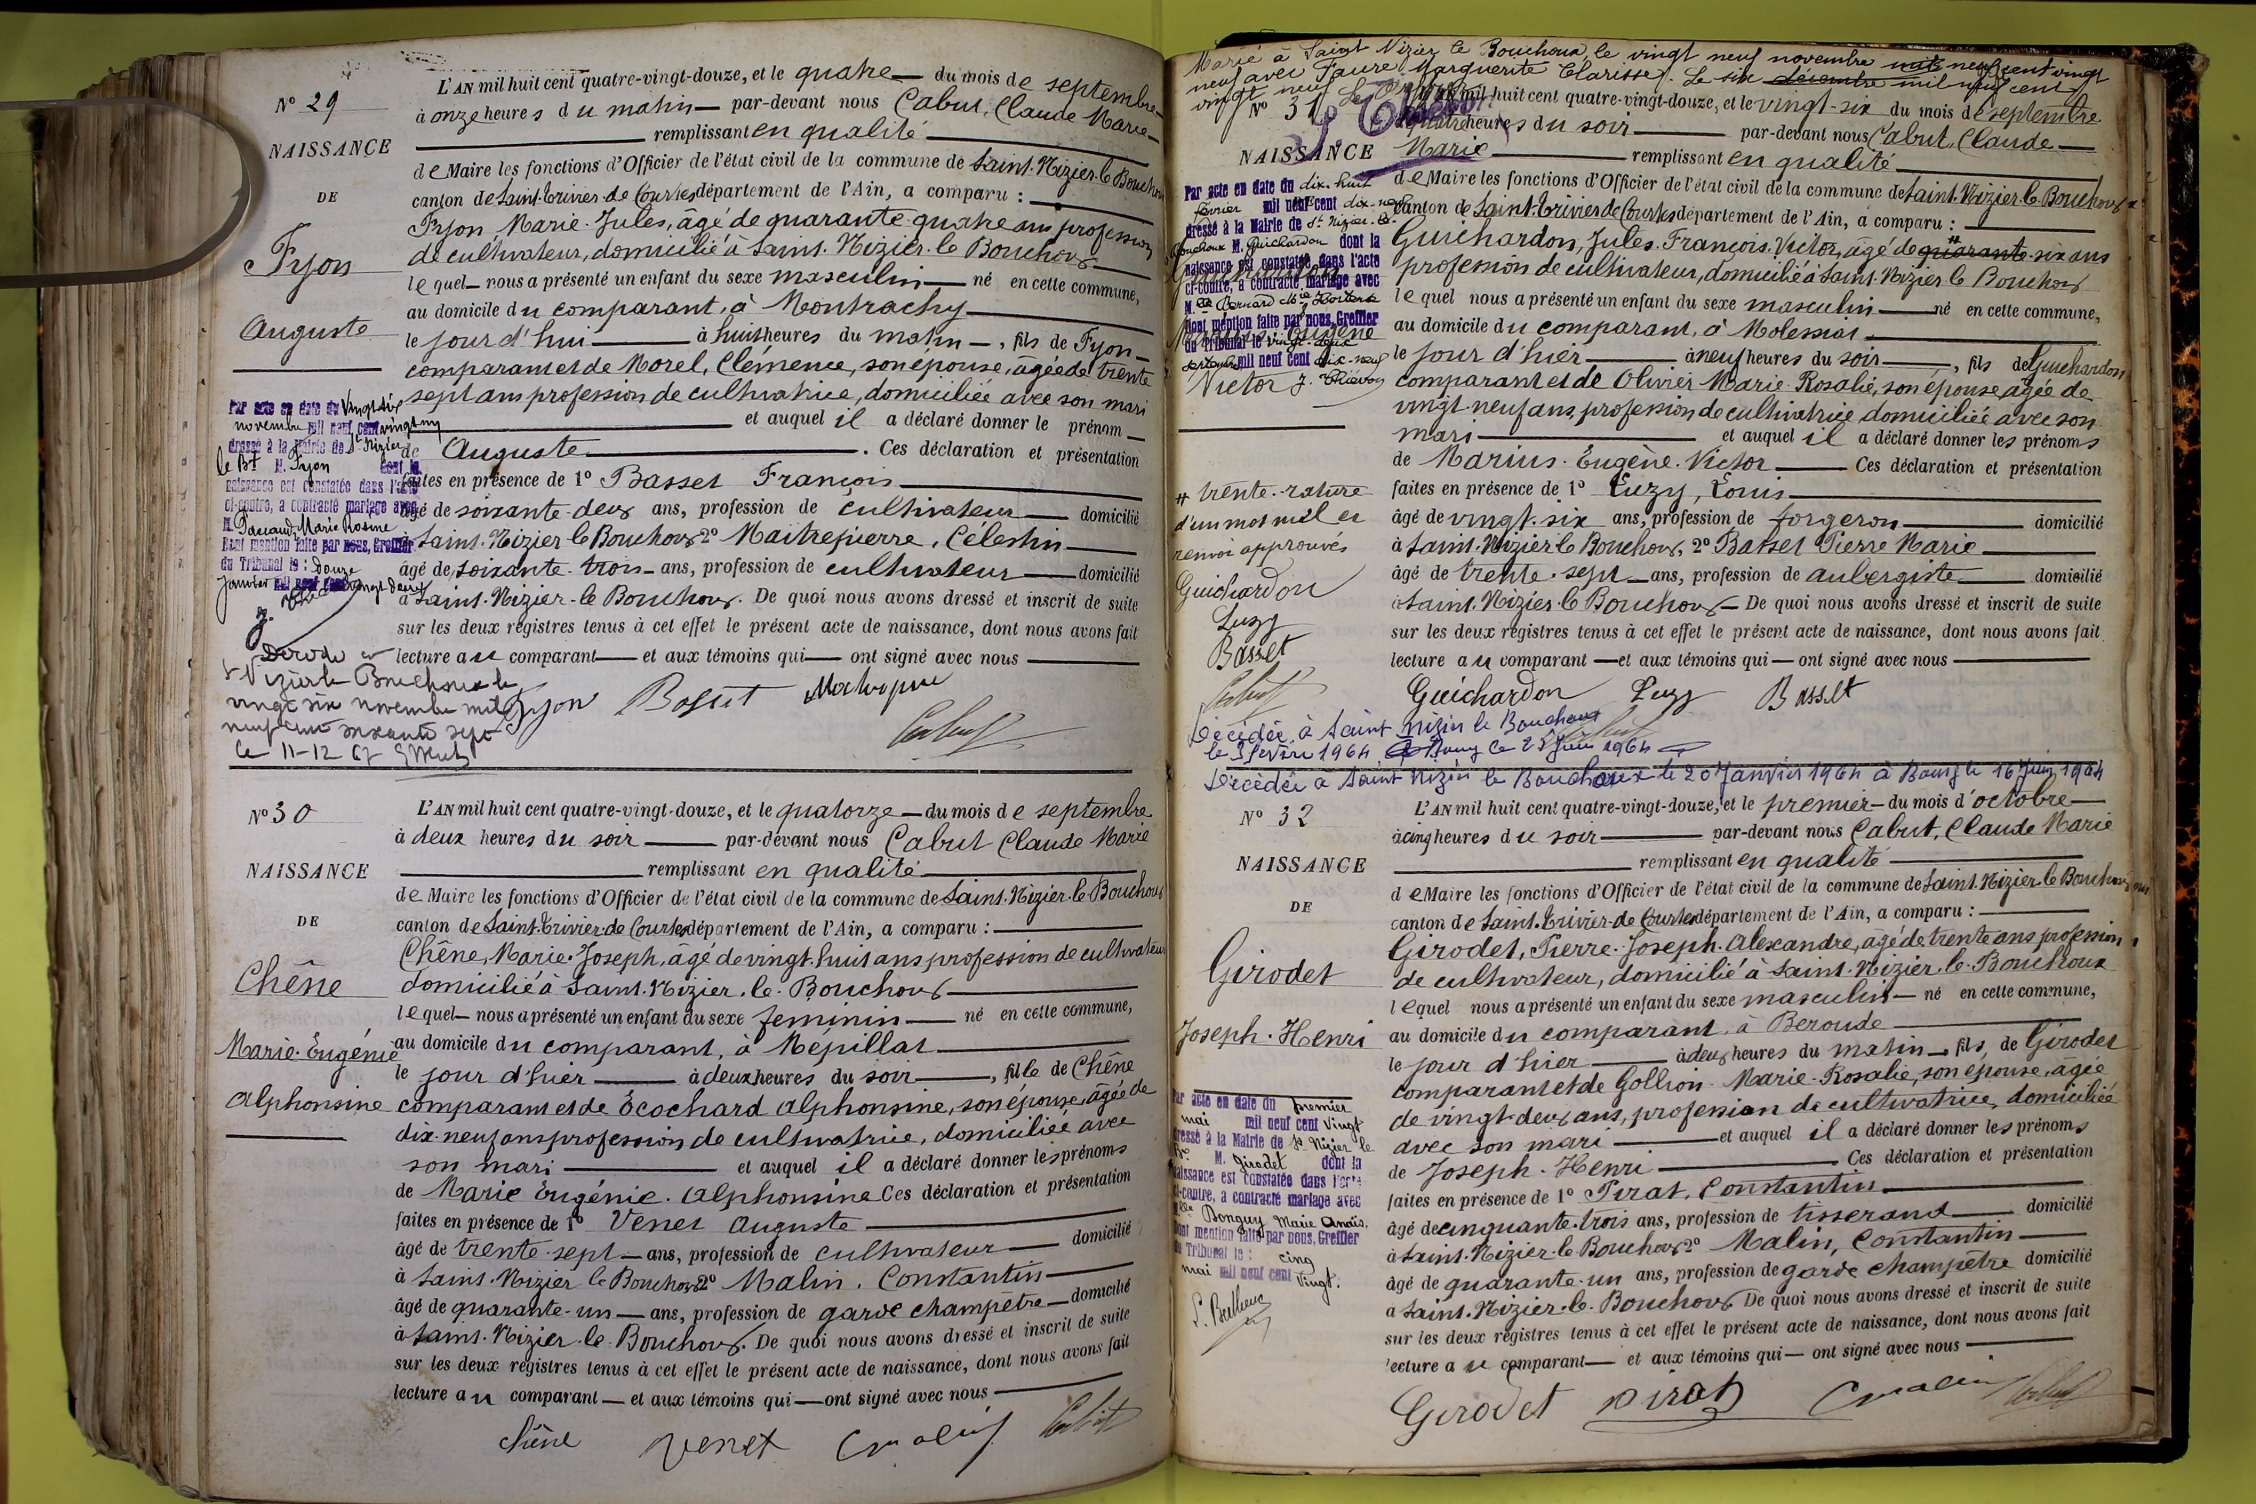 N° 29
NAISSANCE
DE
Fyon
Auguste
L'AN mil huit cent quatre-vingt-douze, et le quatre du mois de septembre
à onze heures du matin par-devant nous Cabut, Claude Marie
remplissant en qualité
de Maire les fonctions d'Officier de l'état civil de la commune de Saint-Nizier-le-Bouchoux
canton de Saint-Trivier-de-Courtes département de l'Ain, a comparu :
Fyon Marie-Jules, âgé de quarante-quatre ans profession
de cultivateur, domicilié à Saint-Nizier-le-Bouchoux
lequel nous a présenté un enfant du sexe masculin né en cette commune,
au domicile du comparant, à Montrachy
le jour d'hui à huit heures du matin, fils de Fyon
comparant et de Morel, Clémence, son épouse, âgée de trente
sept ans profession de cultivatrice, domiciliée avec son mari
et auquel il a déclaré donner le prénom
de Auguste. Ces déclaration et présentation
faites en présence de 1° Basset François
âgé de soixante-deux ans, profession de cultivateur domicilié
à Saint-Nizier le Bouchoux 2° Maitrepierre, Célestin
âgé de soixante-trois ans, profession de cultivateur domicilié
à Saint-Nizier-le-Bouchoux. De quoi nous avons dressé et inscrit de suite
sur les deux registres tenus à cet effet le présent acte de naissance, dont nous avons fait
lecture au comparant et aux témoins qui ont signé avec nous
Par acte en date du vingt six
novembre mil neuf cent vingt un
dressé à la Mairie de St Nizier
le Bt M. Fyon dont la
naissance est constatée dans l'acte
ci-contre, a contracté mariage avec
M. Paccaud Marie Rosine
Dont mention faite par nous, Greffier
du Tribunal le : douze
Janvier mil neuf cent vingt deux
Décédé à
St Nizier le Bouchoux le
vingt six novembre mil
neuf cent soixante sept
Le 11-12 67
Fyon Basset Maitrepierre
Cabut
N° 30
NAISSANCE
DE
Chêne
Marie-Eugénie
Alphonsine
L'AN mil huit cent quatre-vingt-douze, et le quatorze du mois de septembre
à deux heures du soir par-devant nous Cabut Claude Marie
remplissant en qualité
de Maire les fonctions d'Officier de l'état civil de la commune de Saint-Nizier-le Bouchoux
canton de Saint-Trivier-de-Courtes département de l'Ain, a comparu :
Chêne, Marie-Joseph, âgé de vingt-huit ans profession de cultivateur
domicilié à Saint-Nizier-le-Bouchoux
lequel nous a présenté un enfant du sexe féminin né en cette commune,
au domicile du comparant, à Mépillat
le jour d'hier à deux heures du soir, fille de Chêne
comparant et de Écochard Alphonsine, son épouse, âgée de
dix-neuf ans profession de cultivatrice, domiciliée avec
son mari et auquel il a déclaré donner les prénoms
de Marie Eugénie-Alphonsine Ces déclaration et présentation
faites en présence de 1° Venet Auguste
âgé de trente-sept ans, profession de cultivateur domicilié
à Saint-Nizier le Bouchoux 2° Malin, Constantin
âgé de quarante-un ans, profession de garde champêtre domicilié
à Saint-Nizier-le-Bouchoux. De quoi nous avons dressé et inscrit de suite
sur les deux registres tenus à cet effet le présent acte de naissance, dont nous avons fait
lecture au comparant et aux témoins qui ont signé avec nous
Chêne Venet C Malin Cabut
Marié à Saint Nizier le Bouchoux le vingt neuf novembre mil neuf cent vingt
neuf avec Favre Marguerite Clarisse. Le six décembre mil neuf cent
vingt neuf
N° 31
NAISSANCE
L'AN mil huit cent quatre-vingt-douze, et le vingt-six du mois de septembre
à quatre heures du soir par-devant nous Cabut, Claude
Marie remplissant en qualité
de Maire les fonctions d'Officier de l'état civil de la commune de Saint-Nizier-le-Bouchoux
canton de Saint-Trivier de Courtes département de l'Ain, a comparu :
Guichardon, Jules-François-Victor, âgé de # quarante-six ans
profession de cultivateur, domicilié à Saint-Nizier le Bouchoux
lequel nous a présenté un enfant du sexe masculin né en cette commune,
au domicile du comparant, à Molessiat
le jour d'hier à neuf heures du soir, fils de Guichardon
comparant et de Olivier Marie-Rosalie, son épouse, âgée de
vingt-neuf ans, profession de cultivatrice domiciliée avec son
mari et auquel il a déclaré donner les prénoms
de Marius-Eugène-Victor Ces déclaration et présentation
faites en présence de 1° Luzy, Louis
âgé de vingt-six ans, profession de forgeron domicilié
à Saint-Nizier le Bouchoux, 2° Basset Pierre Marie
âgé de trente-sept ans, profession de aubergiste domicilié
à Saint-Nizier-le Bouchoux De quoi nous avons dressé et inscrit de suite
sur les deux registres tenus à cet effet le présent acte de naissance, dont nous avons fait
lecture au comparant et aux témoins qui ont signé avec nous
Par acte en date du dix-huit
février mil neuf cent dix-neuf
dressé à la Mairie de St Nizier-le-
Bouchoux M. Guichardon dont la
naissance est constatée dans l'acte
ci-contre, a contracté mariage avec
M.lle Bernard Mie Hortense
Dont mention faite par nous, Greffier
du Tribunal le vingt-deux
septembre mil neuf cent dix-neuf
Guichardon
Marius-Eugène
Victor
# trente-rature
d'un mot nul et
renvoi approuvés
Guichardon
Luzy
Basset
Cabut
Guichardon Luzy Basset
Cabut
Décédée à Saint Nizier le Bouchoux
le 3 février 1964 à Bourg le 25 Juin 1964
Décédée à Saint Nizier le Bouchoux le 20 Janvier 1964 à Bourg le 16 Juin 1964
N° 32
NAISSANCE
DE
Girodet
Joseph-Henri
L'AN mil huit cent quatre-vingt-douze, et le premier du mois d'octobre
à cinq heures du soir par-devant nous Cabut, Claude Marie
remplissant en qualité
de Maire les fonctions d'Officier de l'état civil de la commune de Saint-Nizier-le-Bouchoux
canton de Saint-Trivier-de Courtes département de l'Ain, a comparu :
Girodet, Pierre-Joseph-Alexandre, âgé de trente ans profession
de cultivateur, domicilié à Saint-Nizier-le-Bouchoux
lequel nous a présenté un enfant du sexe masculin né en cette commune,
au domicile du comparant, à Beroude
le jour d'hier à deux heures du matin, fils de Girodet
comparant et de Gollion Marie-Rosalie, son épouse, âgée
de vingt-deux ans, profession de cultivatrice, domiciliée
avec son mari et auquel il a déclaré donner les prénoms
de Joseph-Henri Ces déclaration et présentation
faites en présence de 1° Pirat, Constantin
âgé de cinquante-trois ans, profession de tisserand domicilié
à Saint-Nizier-le Bouchoux 2° Malin, Constantin
âgé de quarante-un ans, profession de garde champêtre domicilié
à Saint-Nizier-le-Bouchoux De quoi nous avons dressé et inscrit de suite
sur les deux registres tenus à cet effet le présent acte de naissance, dont nous avons fait
lecture au comparant et aux témoins qui ont signé avec nous
Par acte en date du premier
mai mil neuf cent vingt
dressé à la Mairie de St Nizier le
Bx M. Girodet dont la
naissance est constatée dans l'acte
ci-contre, a contracté mariage avec
Melle Bonguy Marie Anaïs.
Dont mention faite par nous, Greffier
du Tribunal le : cinq
mai mil neuf cent vingt.
Girodet Pirat C Malin Cabut